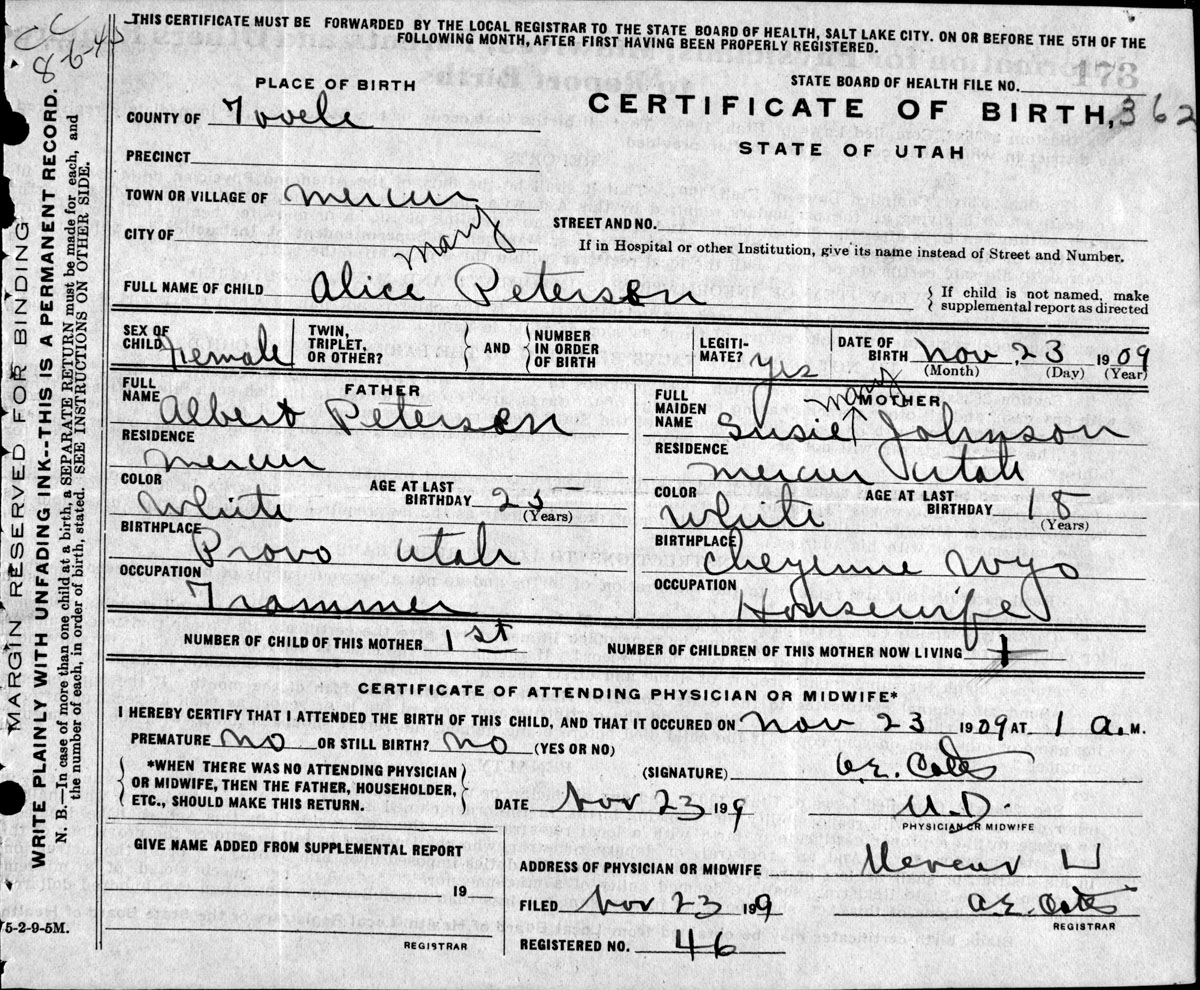 CC
8-6-43
THIS CERTIFICATE MUST BE FORWARDED BY THE LOCAL REGISTRAR TO THE STATE BOARD OF HEALTH, SALT LAKE CITY. ON OR BEFORE THE 5TH OF THE
FOLLOWING MONTH, AFTER FIRST HAVING BEEN PROPERLY REGISTERED.
173
PLACE OF BIRTH
STATE BOARD OF HEALTH FILE NO.
CERTIFICATE OF BIRTH, 362
COUNTY OF Tooele
STATE OF UTAH
PRECINCT
TOWN OR VILLAGE OF Mercur
STREET AND NO.
CITY OF
If in Hospital or other Institution, give its name instead of Street and Number.
Mary
FULL NAME OF CHILD Alice Peterson
{ If child is not named, make
supplemental report as directed
SEX OF CHILD Female
TWIN, TRIPLET, OR OTHER?
{ AND }
NUMBER IN ORDER OF BIRTH
LEGITI-MATE? yes
DATE OF BIRTH Nov 23 1909
(Month) (Day) (Year)
FATHER
FULL NAME Albert Peterson
RESIDENCE Mercur
COLOR White
AGE AT LAST BIRTHDAY 25 (Years)
BIRTHPLACE Provo Utah
OCCUPATION Trammer
MOTHER
Mary
FULL MAIDEN NAME Susie Johnson
RESIDENCE Mercur Utah
COLOR White
AGE AT LAST BIRTHDAY 18 (Years)
BIRTHPLACE Cheyenne Wyo
OCCUPATION Housewife
NUMBER OF CHILD OF THIS MOTHER 1st
NUMBER OF CHILDREN OF THIS MOTHER NOW LIVING 1
CERTIFICATE OF ATTENDING PHYSICIAN OR MIDWIFE*
I HEREBY CERTIFY THAT I ATTENDED THE BIRTH OF THIS CHILD, AND THAT IT OCCURED ON Nov 23 1909 AT 1 a. M.
PREMATURE no OR STILL BIRTH? no (YES OR NO)
*WHEN THERE WAS NO ATTENDING PHYSICIAN
OR MIDWIFE, THEN THE FATHER, HOUSEHOLDER,
ETC., SHOULD MAKE THIS RETURN.
(SIGNATURE)
DATE Nov 23 199
M.D.
PHYSICIAN OR MIDWIFE
GIVE NAME ADDED FROM SUPPLEMENTAL REPORT
19
REGISTRAR
ADDRESS OF PHYSICIAN OR MIDWIFE Mercur U
FILED Nov 23 199
REGISTRAR
REGISTERED NO. 46
MARGIN RESERVED FOR BINDING
WRITE PLAINLY WITH UNFADING INK--THIS IS A PERMANENT RECORD.
N. B.—In case of more than one child at a birth, a SEPARATE RETURN must be made for each, and
the number of each, in order of birth, stated. SEE INSTRUCTIONS ON OTHER SIDE.
75-2-9-5M.